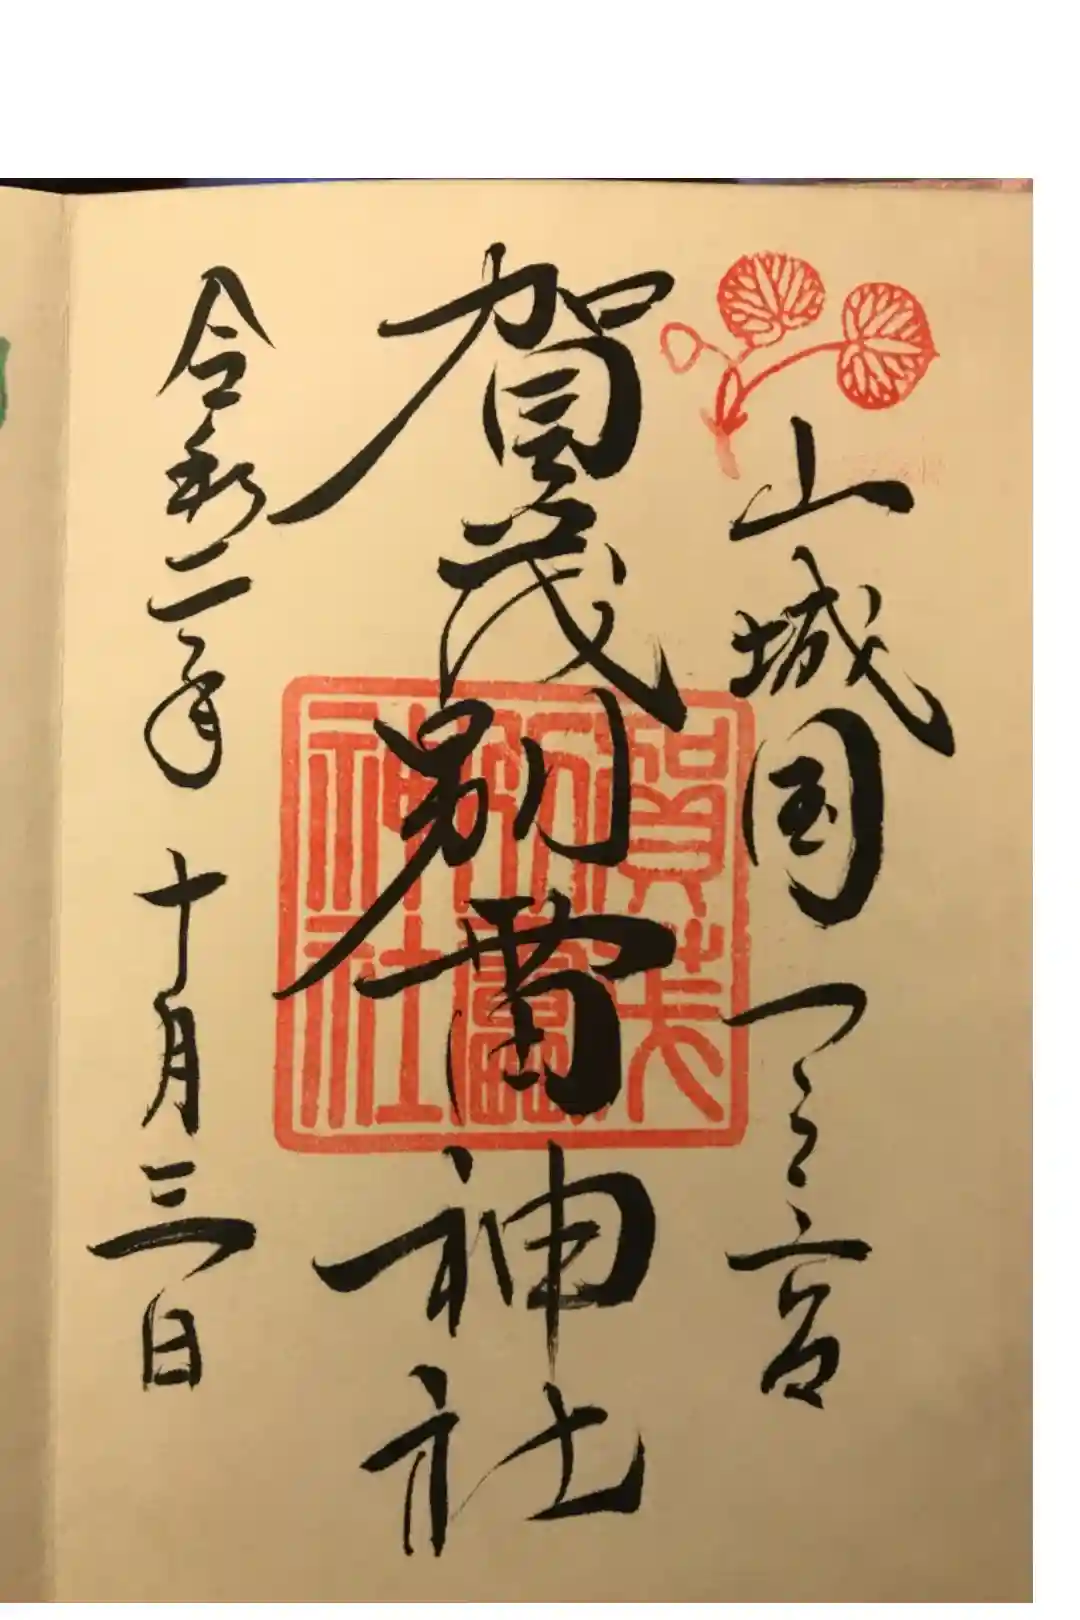 山城国一之宮
賀茂別雷神社
令和二年 十月三日
賀茂
別雷
神社